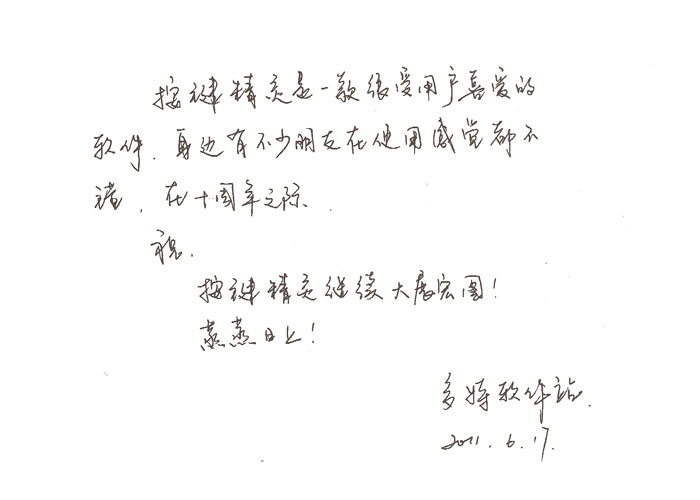 按键精灵是一款很受用户喜爱的
软件.身边有不少朋友在使用感觉都不
错,在十周年之际.
祝.
按键精灵继续大展宏图!
蒸蒸日上!
多特软件站.
2011.6.17.